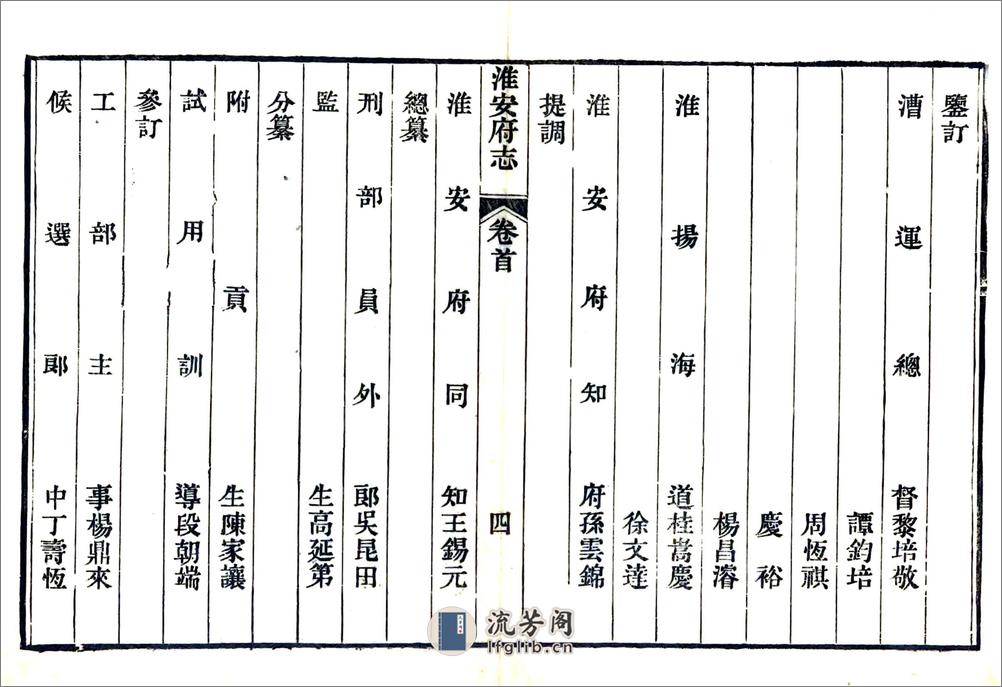 鑒訂
漕運總督黎培敬
譚鈞培
周恆祺
慶裕
楊昌濬
淮揚海道桂嵩慶
徐文達
淮安府知府孫雲錦
提調
淮安府志 卷首 四
淮安府同知王錫元
總纂
刑部員外郎吳昆田
監生高延第
分纂
附貢生陳家讓
試用訓導段朝端
參訂
工部主事楊鼎來
候選郎中丁壽恆
流芳阁
lfglib.cn